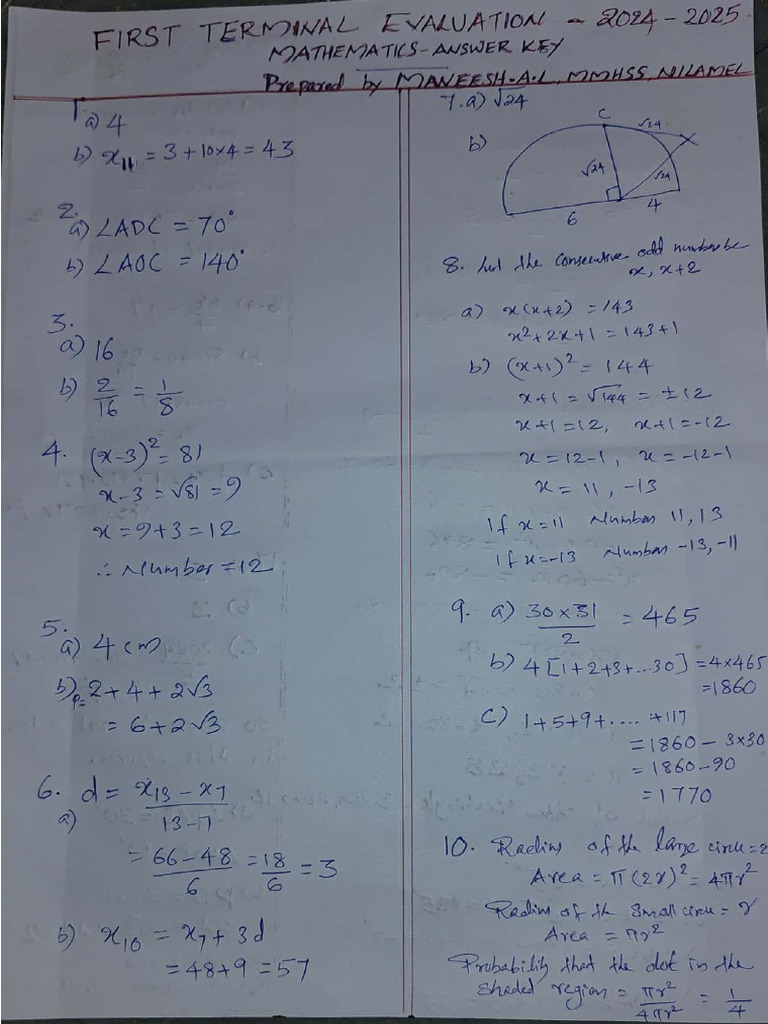 FIRST TERMINAL EVALUATION - 2024-2025
MATHEMATICS-ANSWER KEY
Prepared by MANEESH.A.L, MMHSS, NILAMEL
1
a) 4
b) x₁₁ = 3 + 10×4 = 43
2.
a) ∠ADC = 70°
b) ∠AOC = 140°
3.
a) 16
b) 2/16 = 1/8
4. (x-3)² = 81
x-3 = √81 = 9
x = 9+3 = 12
∴ Number = 12
5.
a) 4 cm
b) P= 2+4+2√3
= 6+2√3
6. d = x₁₃ - x₇ / 13-7
a)
= 66-48 / 6 = 18/6 = 3
b) x₁₀ = x₇ + 3d
= 48+9 = 57
7. a) √24
b)
C
√24
√24
√24
6
4
8. Let the consecutive odd numbers be
x, x+2
a) x(x+2) = 143
x²+2x+1 = 143+1
b) (x+1)² = 144
x+1 = √144 = ±12
x+1 = 12, x+1 = -12
x = 12-1, x = -12-1
x = 11, -13
If x=11 Number 11, 13
if x=-13 Number -13, -11
9. a) 30×31 / 2 = 465
b) 4[1+2+3+...30] = 4×465
= 1860
C) 1+5+9+.... +117
= 1860 - 3×30
= 1860-90
= 1770
10. Radius of the large circle = 2
Area = π(2r)² = 4πr²
Radius of the small circle = r
Area = πr²
Probability that the dot in the
shaded region = πr²/4πr² = 1/4